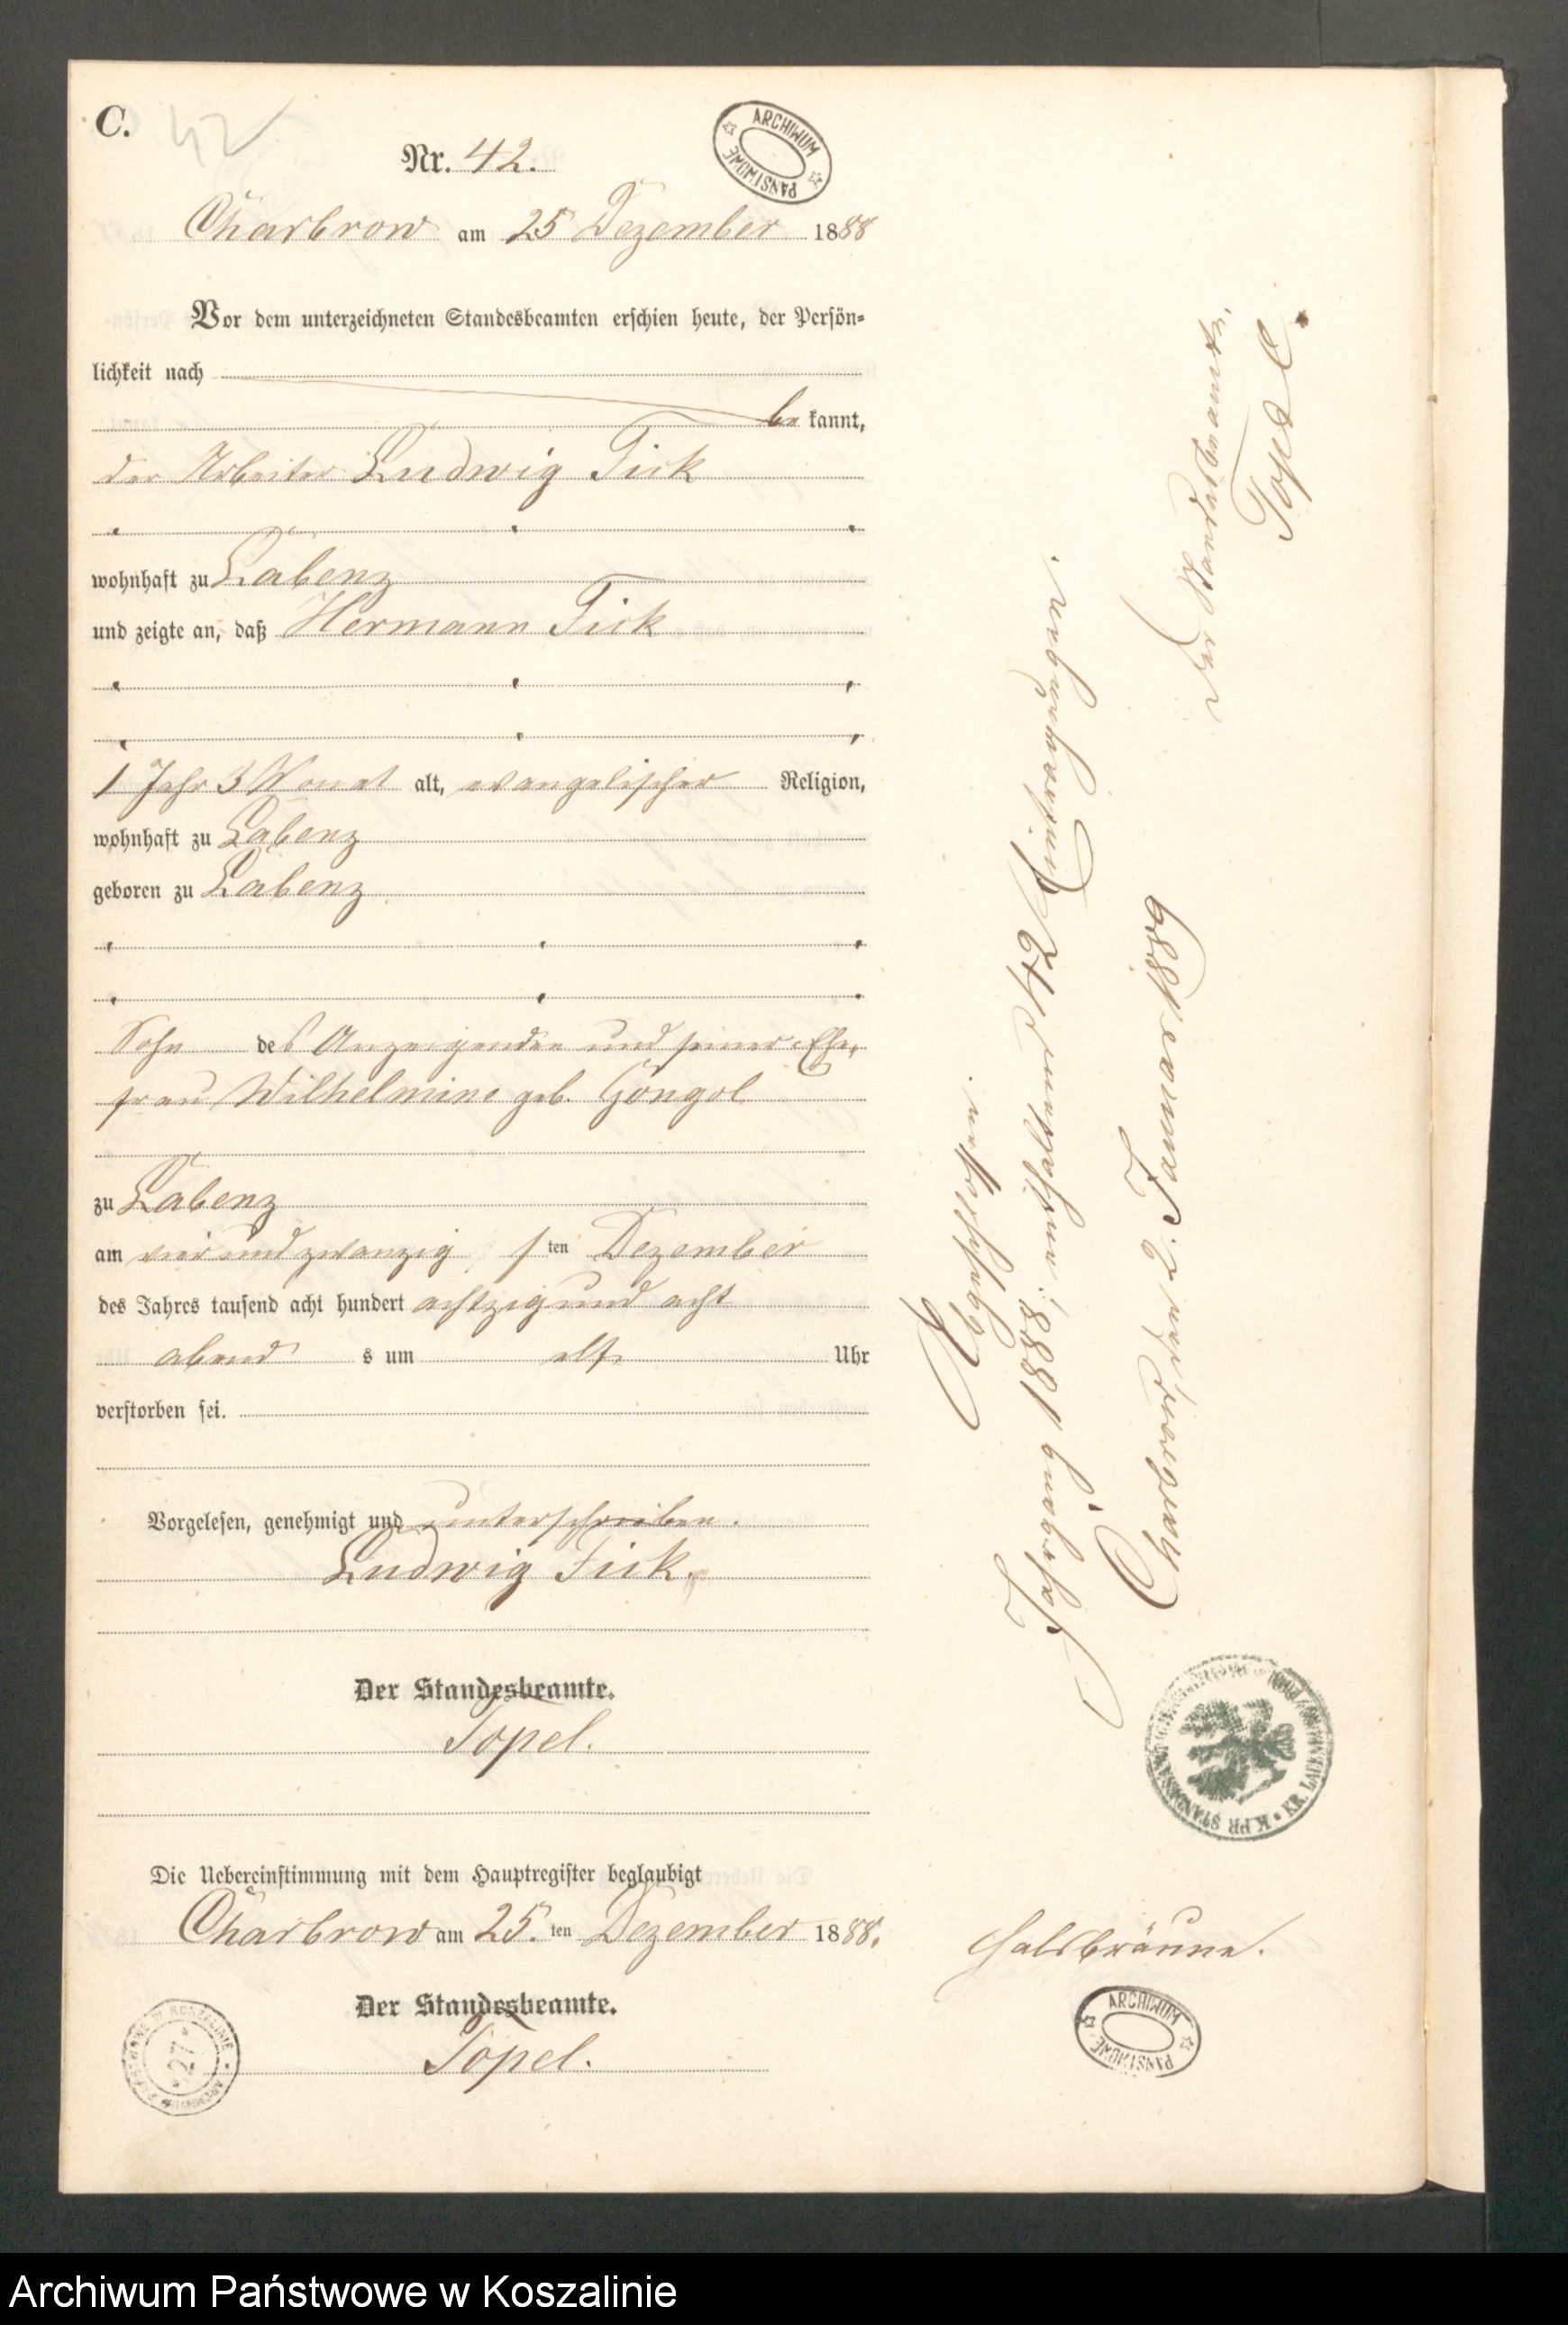 C.
42
Nr. 42.
ARCHIWUM PAŃSTWOWE
Charbrow am 25 Dezember 1888
Vor dem unterzeichneten Standesbeamten erschien heute, der Persön-
lichkeit nach
be kannt,
der Arbeiter Ludwig Fick
wohnhaft zu Labenz
und zeigte an, daß Hermann Fick
1 Jahr 3 Monat alt, evangelischer Religion,
wohnhaft zu Labenz
geboren zu Labenz
Sohn des Anzeigenden und seiner Ehe-
frau Wilhelmine geb. Gongol
zu Labenz
am vier und zwanzig sten Dezember
des Jahres tausend acht hundert achtzig und acht
abend s um elf Uhr
verstorben sei.
Vorgelesen, genehmigt und unterschrieben.
Ludwig Fick.
Der Standesbeamte.
Topel.
Die Uebereinstimmung mit dem Hauptregister beglaubigt
Charbrow am 25. ten Dezember 1888.
Der Standesbeamte.
Topel.
ARCHIWUM PAŃSTWOWE W KOSZALINIE
27
Abgeschlossen.
Jahrgang 1888, enthaltend 42 Eintragungen.
Charbrow, den 2. Januar 1889
Der Standesbeamte.
Topel.
Halsbräune.
ARCHIWUM PAŃSTWOWE
Archiwum Państwowe w Koszalinie